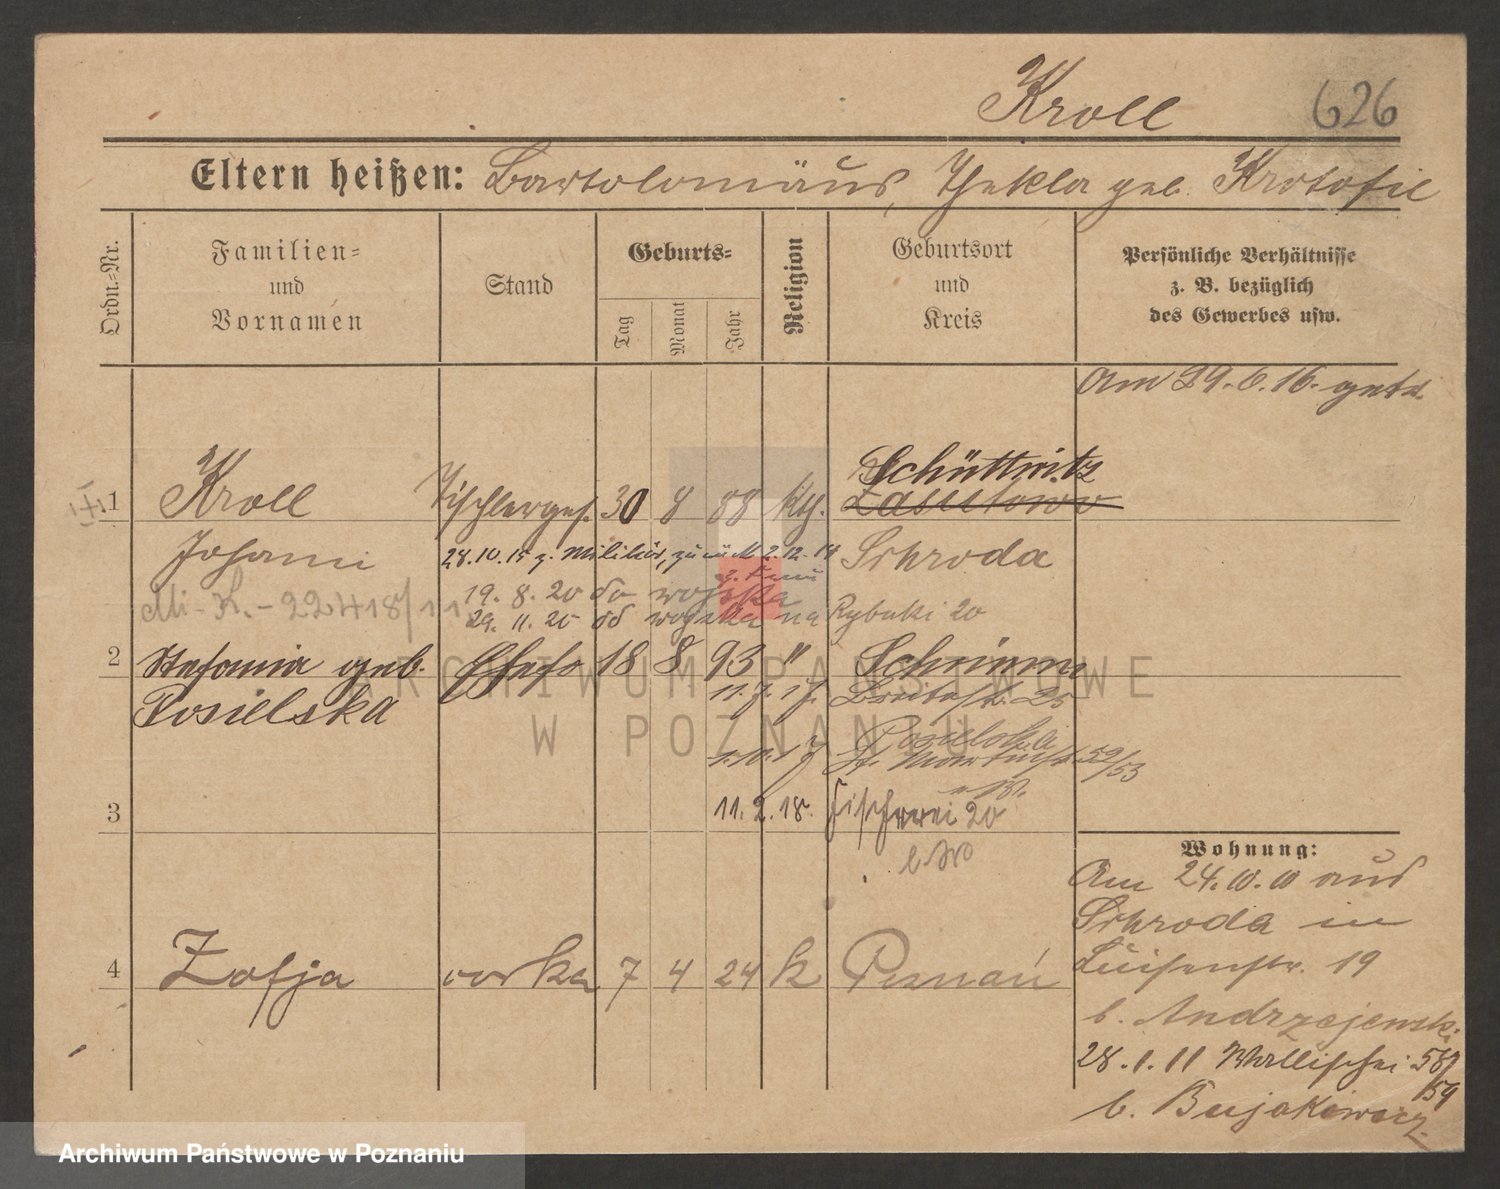 Kroll 626
Eltern heißen: Bartolomäus, Thekla geb. Krotofil
Ordn.-Nr.
Familien-
und
Vornamen
Stand
Geburts-
Tag
Monat
Jahr
Religion
Geburtsort
und
Kreis
Persönliche Verhältnisse
z. B. bezüglich
des Gewerbes usw.
Am 29.6.16. getr.
1 Kroll Tischlerges. 30 8 88 kth. Schüttwitz
Johann 28.10.15 z. Militär, zurück 2.12.18 Schroda
19. 8. 20 do wojska
29. 11. 20 od wojska na Rybaki 20
2 Stefania geb. Ehefr. 18 8 93 " Schrimm
Posielska 11.7.17. Breitestr. 25
Posielska
St. Martinstr 52/53
3 11.2.18. Fischerei 20
b. W
4 Zofja córka 7 4 24 k Poznań
Wohnung:
Am 24.10.10 aus
Schroda in
Luisenstr. 19
b. Andrzejewski
28.1.11 Wallischei 58/59
b. Bujakiewicz
ARCHIWUM PAŃSTWOWE
W POZNANIU
Archiwum Państwowe w Poznaniu